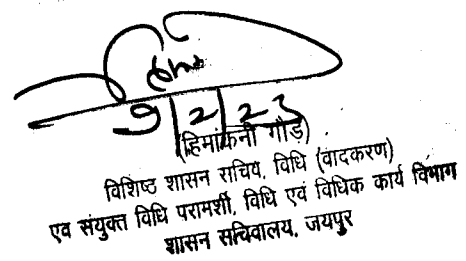 9/2/23
(हिमांकनी गौड़)
विशिष्ठ शासन सचिव, विधि (वादकरण)
एव संयुक्त विधि परामर्शी, विधि एवं विधिक कार्य विभाग
शासन सचिवालय, जयपुर